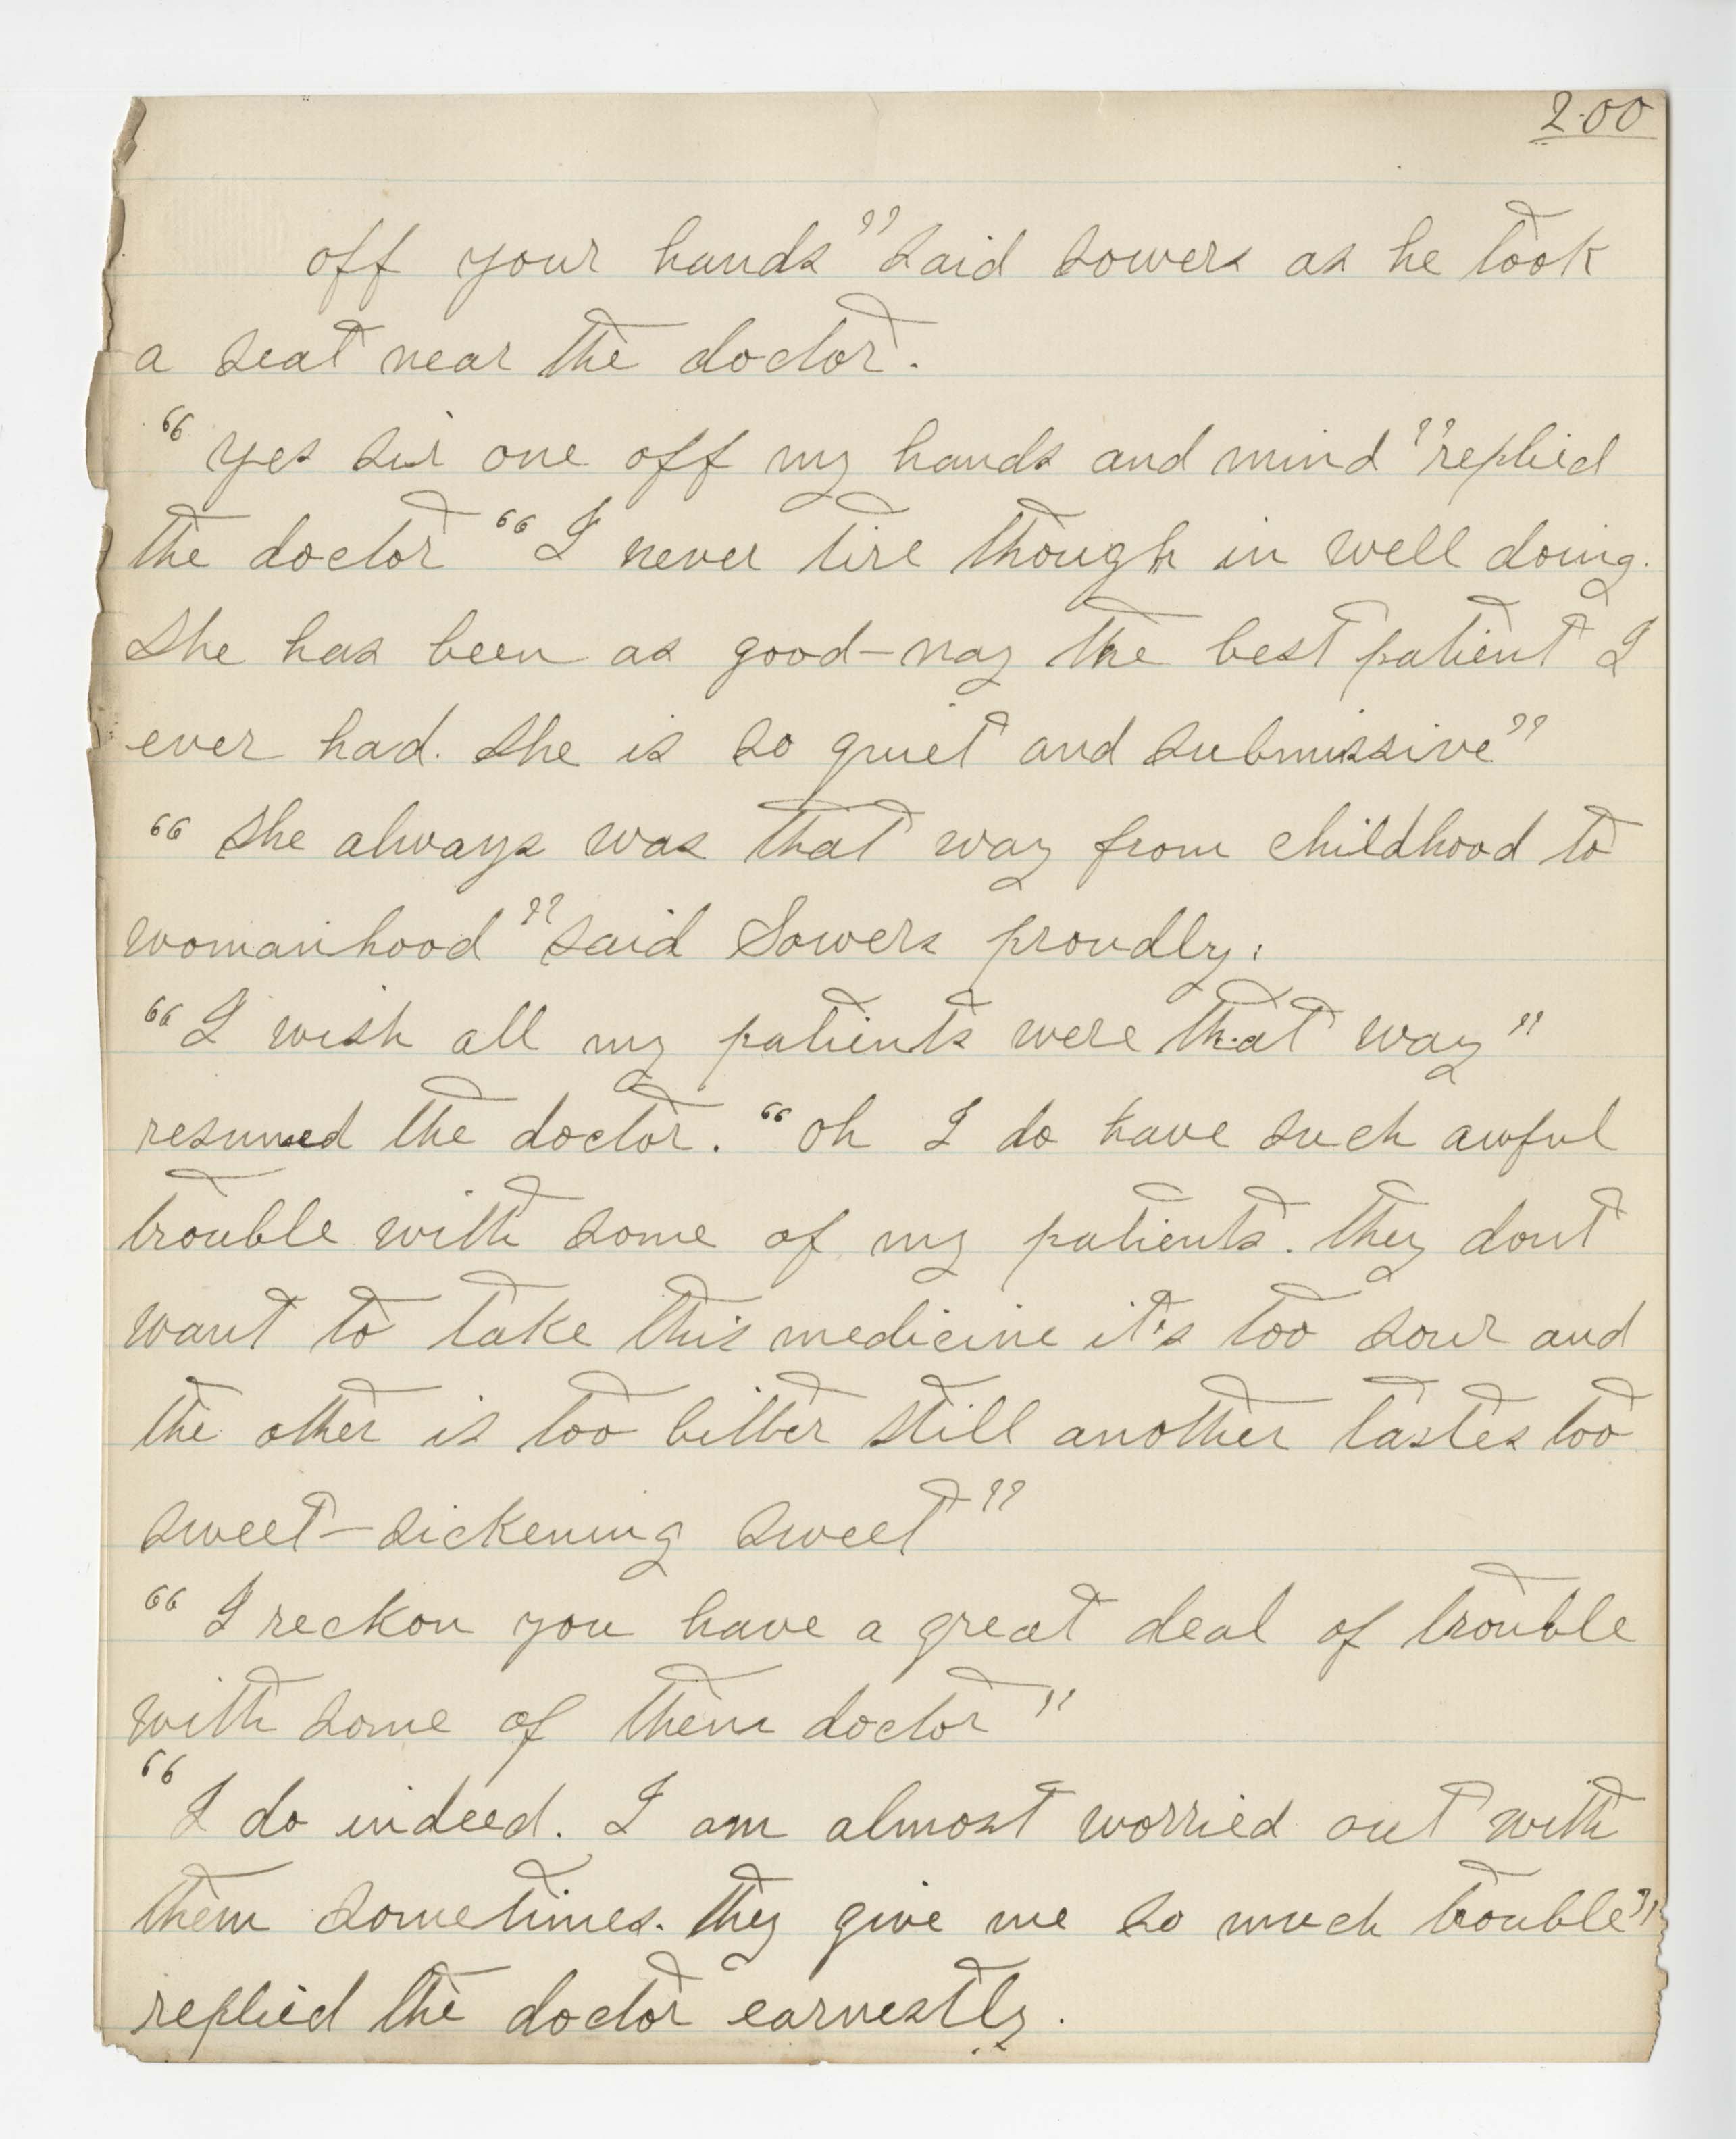 200
off your hands" said Sowers as he took
a seat near the doctor.
"Yes sir one off my hands and mind" replied
the doctor "I never tire though in well doing.
She has been as good-nay the best patient I
ever had. She is so quiet and submissive"
"She always was that way from childhood to
womanhood" said Sowers proudly.
"I wish all my patients were that way"
resumed the doctor. "Oh I do have such awful
trouble with some of my patients. They dont
want to take this medicine it's too sour and
the other is too bitter still another tastes too
sweet-sickening sweet"
"I reckon you have a great deal of trouble
with some of them doctor"
"I do indeed. I am almost worried out with
them sometimes. They give me so much trouble"
replied the doctor earnestly.